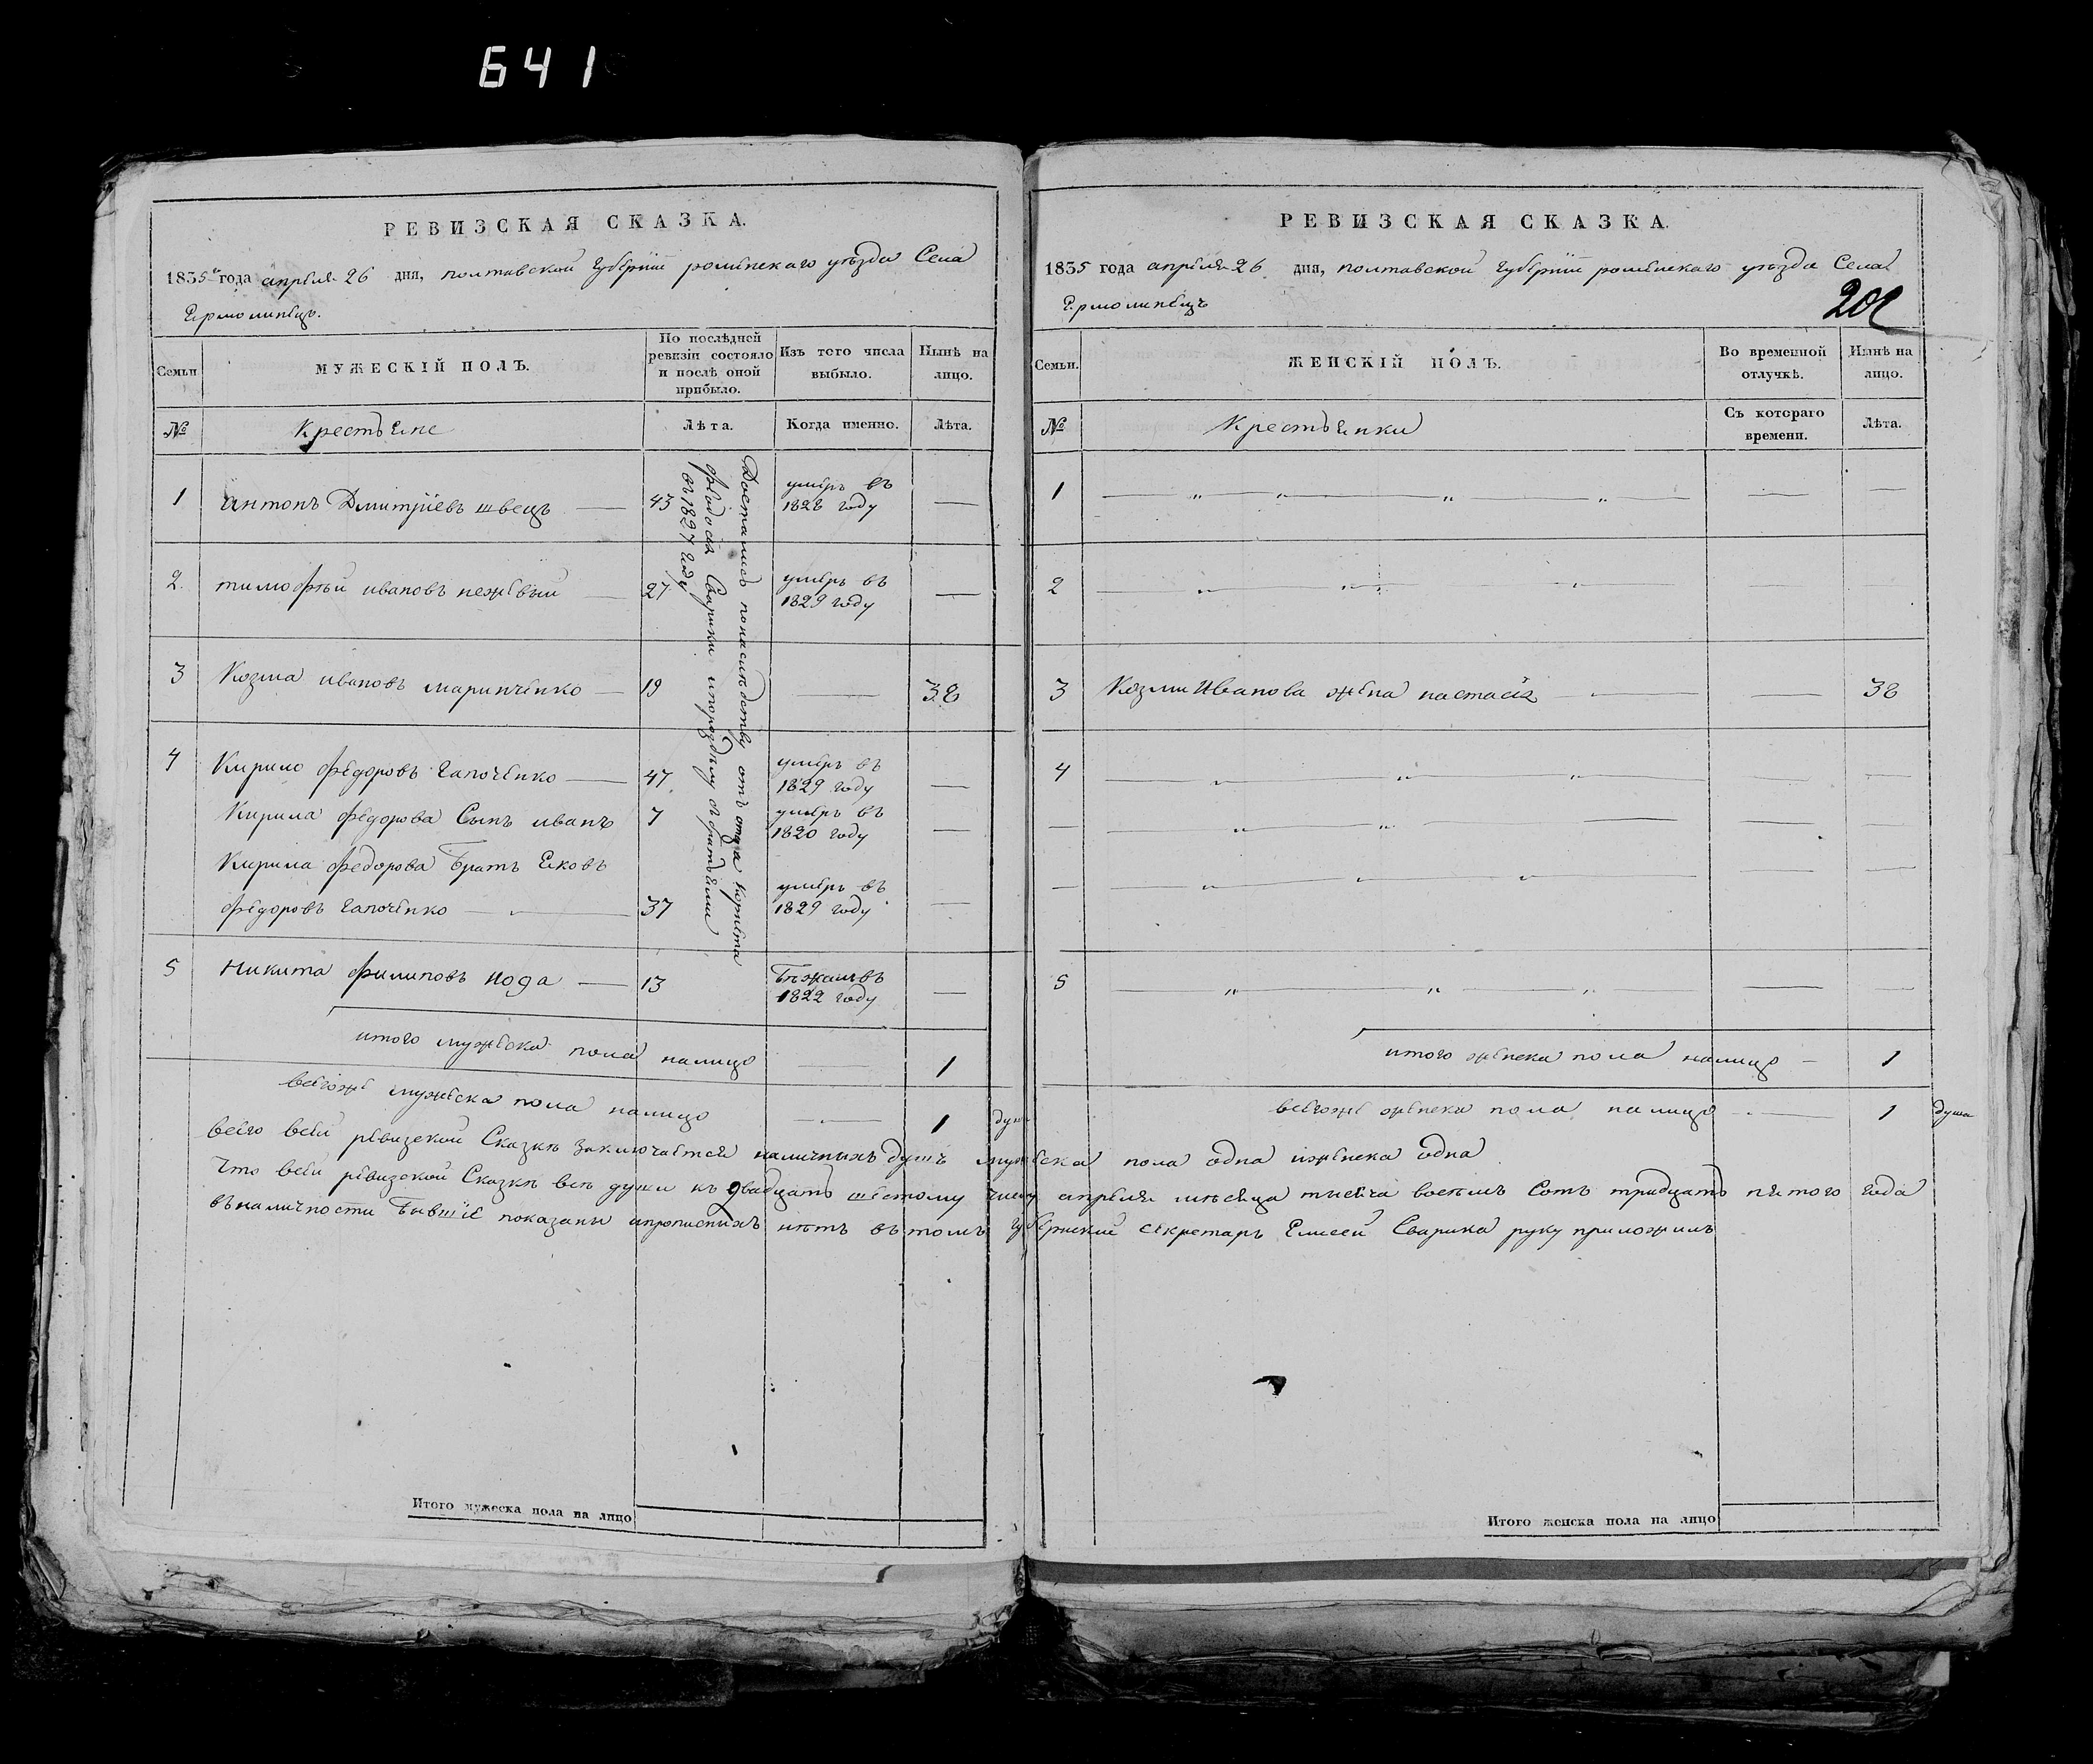 641
РЕВИЗСКАЯ СКАЗКА.
1835 года апреля 26 дня, полтавской Губернїи роменскаго уезда Села
Ермолинец.
Семьи
МУЖЕСКІЙ ПОЛЪ.
По послѣдней ревизіи состояло и послѣ оной прибыло.
Изъ того числа выбыло.
Нынѣ на лицо.
№
Крестьяне
Лѣта.
Когда именно.
Лѣта.
Досталисъ понаследству отъ отца корнета
феодосія Сварики ипоразделу збратьями
въ 1827 году
1 антонъ Дмитрїевъ швецъ 43 умеръ въ 1828 году —
2. тимофей ивановъ неживый 27 умеръ въ 1829 году —
3 Козма ивановъ маринченко — 19 — 38
4 Кирило федоровъ гапоченко — 47 умеръ въ 1829 году —
Кирила федорова Сынъ иванъ 7 умеръ въ 1820 году —
Кирила федорова Братъ Яковъ
федоровъ гапоченко — 37 умеръ въ 1829 году —
5 Никита филиповъ нога — 13 Бежалъ въ 1822 году —
итого мужеска пола налицо — 1
всегоже мужеска пола налицо — 1 душ
РЕВИЗСКАЯ СКАЗКА.
1835 года апреля 26 дня, полтавской Губернїи роменскаго уезда Села
Ермолинецъ
Семьи.
ЖЕНСКІЙ ПОЛЪ.
Во временной отлучкѣ.
Нынѣ на лицо.
№
Крестьянки
Съ котораго времени.
Лѣта.
1
2
3 Козми Иванова жена настасія — 38
4
5
итого женска пола налицо — 1
всегоже женска пола налицо — 1 душа
всего всей ревизской Сказкѣ заключается наличныхъ душъ мужеска пола одна иженска одна
Что всей ревизской Сказкѣ всѣ души къ двадцать шестому числу апреля месяца тысяча восемъ Сотъ тридцать пятого года
въналичности Бывшїе показаны ипрописныхъ нѣтъ въ томъ губернский секретарь Елисей Сварика руку приложилъ
Итого мужеска пола на лицо
Итого женска пола на лицо